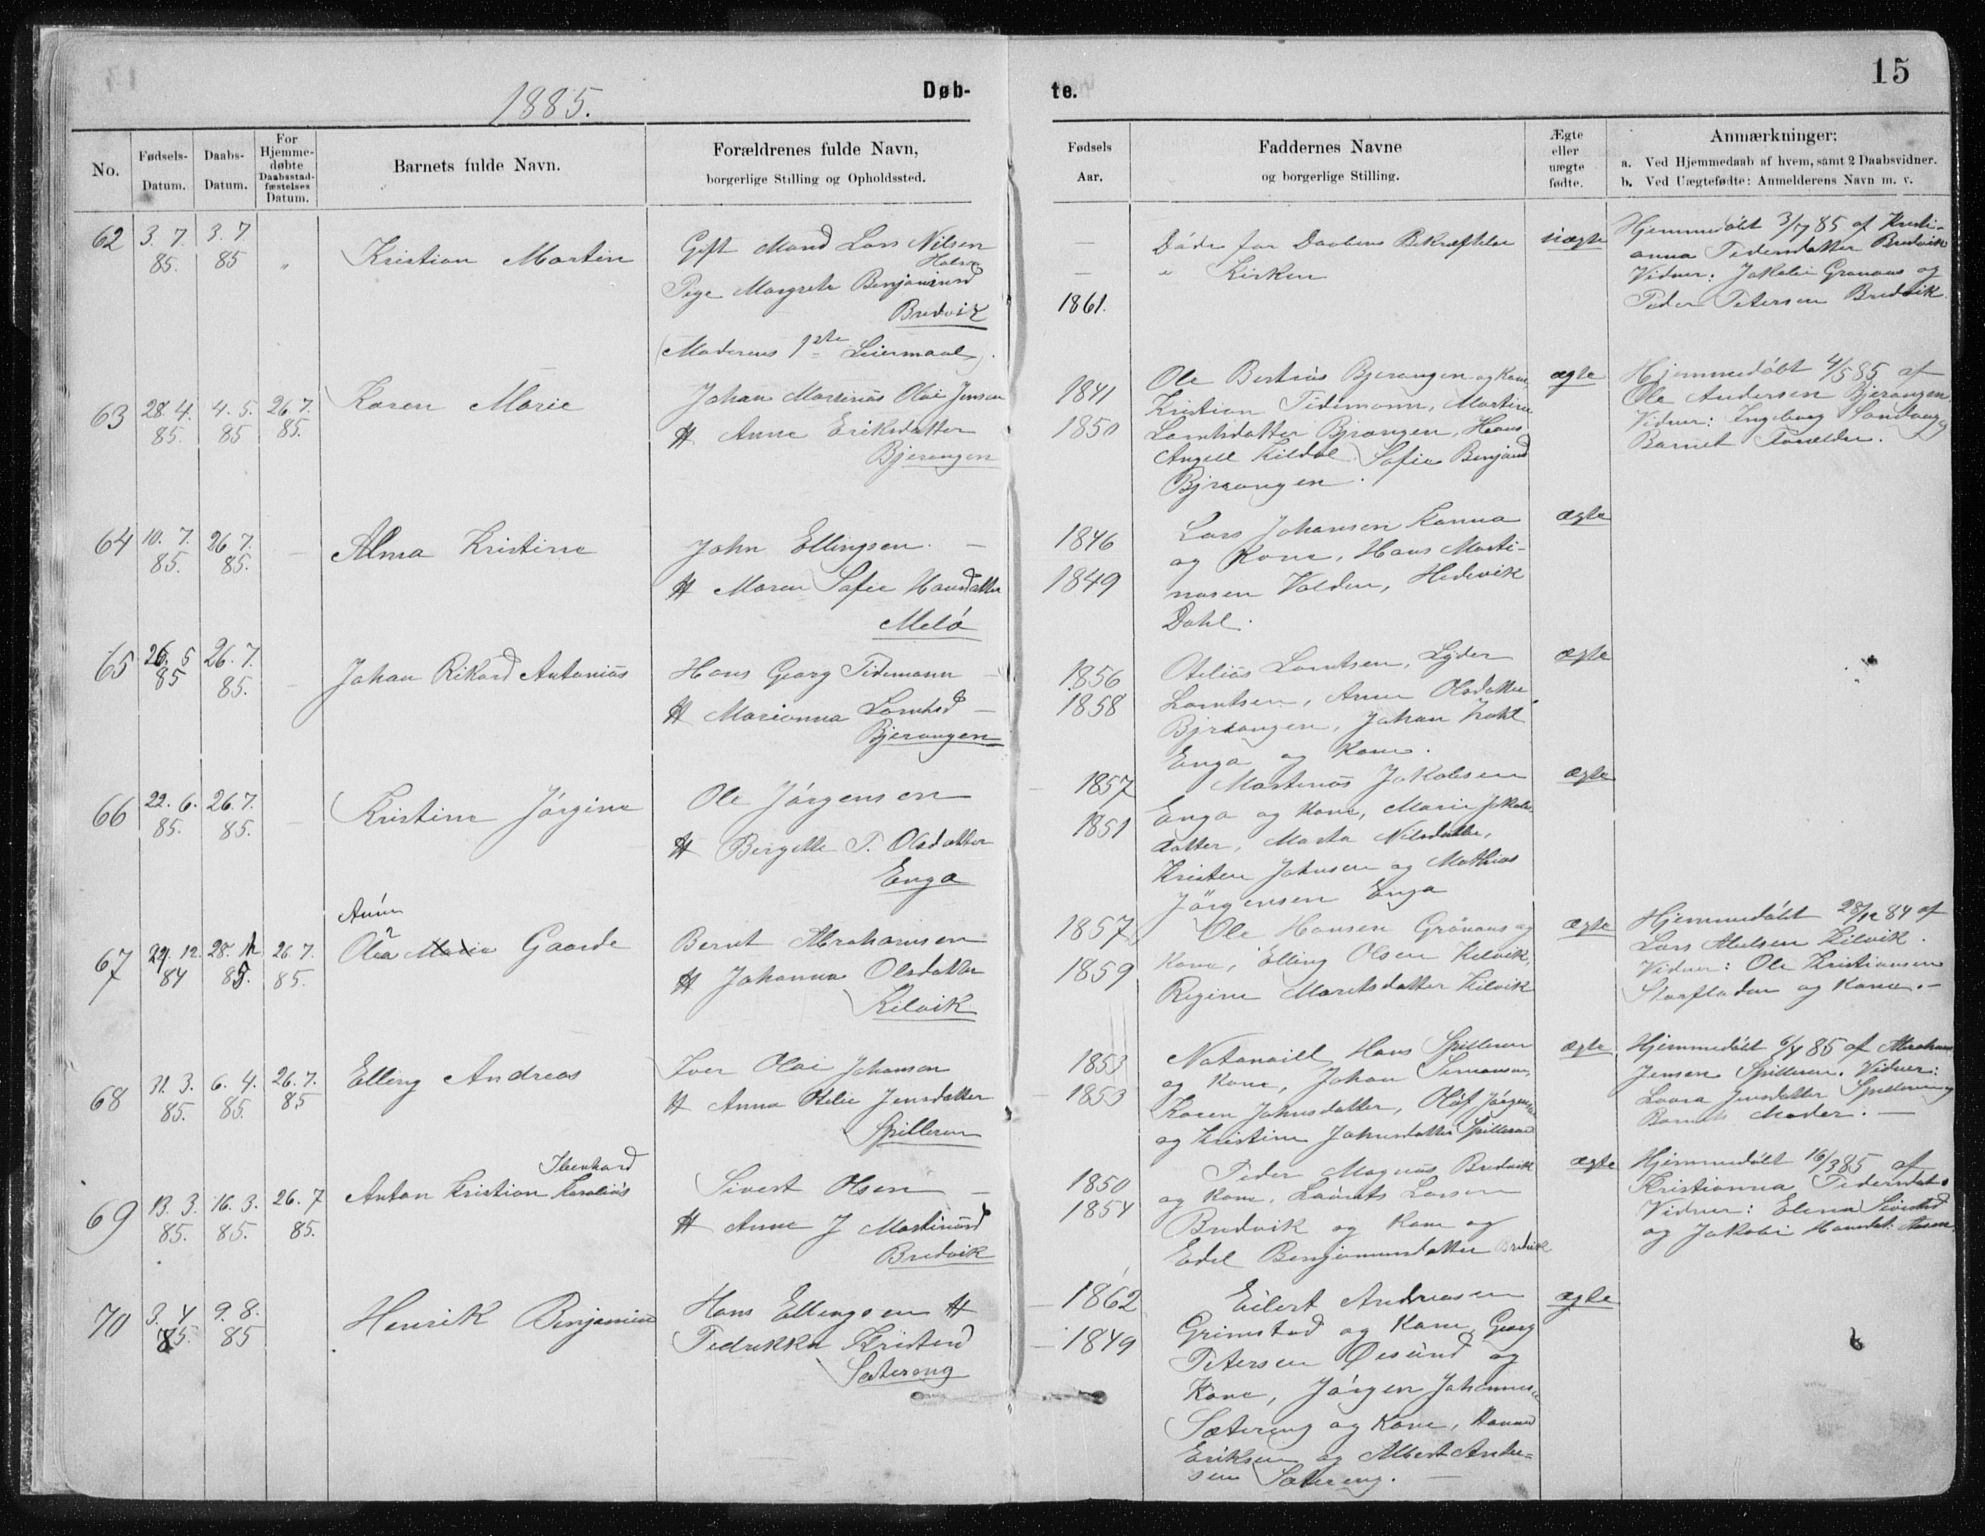 15
1885.
Døb-
te.
No.
Fødsels-
Datum.
Daabs-
Datum.
For
Hjemme-
døbte
Daabsstad-
fæstelses
Datum.
Barnets fulde Navn.
Forældrenes fulde Navn,
borgerlige Stilling og Opholdssted.
Fødsels
Aar.
Faddernes Navne
og borgerlige Stilling.
Ægte
eller
uægte
fødte.
Anmærkninger:
a. Ved Hjemmedaab af hvem, samt 2 Daabsvidner.
b. Ved Uægtefødte: Anmelderens Navn m. v.
62
3. 7.
85.
3. 7.
85
"
Kristian Martin
Gift Mand Lars Nilsen
Pige Margrete Benjaminsd
Bredvik
(Moderens 1ste Leiermaal).
—
—
1861.
Döde før Daabens Bekræftelse
" Kirken
uægte
Hjemmedöbt 3/7 85 af Kristi-
anna Pedersdatter Bredvik
Vidner: Jakobie Grønaas og
Peder Petersen Bredvik.
63
28. 4.
85.
4. 5.
85
26 7.
85.
Karen Marie
Johan Martinus Olai Jensen
H Anne Eriksdatter
Bjerangen
1841
1850
Ole Bertius Bjerangen og Kone,
Kristian Tidemann, Martine
Lorntsdatter Bjrangen, Hans
Angell Kildal, Sofie Benjamd
Bjraangen.
ægte
Hjemmedöbt 4/5 85 af
Ole Andersen Bjerangen.
Vidner: Ingeborg Sandvaag og
Barnets Forældre.
64
10. 7.
85.
26 7.
85.
—
Alma Kristine
John Ellingsen. —
H Maren Sofie Hansdatter
Melö
1846
1849
Lars Johansen Kanna
og Kone, Hans Marti-
nusen Valden, Hedevik
Dahl.
ægte
65
26. 5
85
26. 7.
85.
—
Johan Rikard Antonius
Hans Georg Tidemann —
H Marianna Lorntsd —
Bjerangen
1856
1858
Otelius Lorntsen, Lyder
Lorntsen, Anne Olsdatter
Bjraangen, Johan Prahl
Enga og Kone.
ægte
66
22. 6.
85.
26. 7.
85.
—
Kristine Jörgine
Ole Jörgensen
H Bergitte P. Olsdatter
Enga
1857
1851
Martinus Jakobsen
Enga og Kone, Marie Jakobs-
datter, Marta Nilsdatter,
Kristen Johnsen og Mathias
Jörgensen Enga
ægte
67
29. 12.
84
28. 12
85.
26. 7.
85.
Olea Maria Gaarde
Bernt Abrahamsen
H Johanna Olsdatter
Kilvik
1857
1859
Ole Hansen Grönaas og
Kone, Elling Olsen Kilvik,
Regine Moritsdatter Kilvik
ægte
Hjemmedöbt 28/12 84 af
Lars Nielsen Kilvik.
Vidner: Ole Kristiansen
Storfladen og Kone. —
68
31. 3.
85.
6. 4.
85.
26. 7.
85
Elling Andreas
Iver Olai Johansen
H Anna Pelie Jensdatter
Spilleren
1853
1853
Natanaill Hans Spilleren
og Kone, Johan Simonsen,
Karen Johnsdatter, Olaf Jörgensen
og Kristine Johnsdatter Spilleren
ægte
Hjemmedöbt 6/4 85 af Abraham
Jensen Spilleren. Vidner:
Laura Jensdatter Spilleren og
Barnets Moder. —
69
13. 3.
85.
16. 3.
85.
26. 7
85.
Ibenhard
Anton Kristian Karolius
Sivert Olsen —
H Anne J Martinusd
Bredvik
1850
1854
Peder Magnus Bredvik
og Kone, Laurits Larsen
Bredvik og Kone og
Edel Benjaminsdatter Bredvik
ægte
Hjemmedöbt 16/3 85 af
Kristianna Pedersdat.
Vidner: Elena Sivertsd
og Jakobie Hansdat.
70
3. 4
85.
9. 8.
85
Henrik Benjamin
Hans Ellingsen H
Pedrikka Kristensd
Sæterang
1862
1849
Eilert Andreasen
Grimstad og Kone, Georg
Petersen Øesund og
Kone, Jörgen Johannesen
Sætereng og Kone, Hanna
Eriksen og Albert Ander-
sen Sætereng. —
ægte